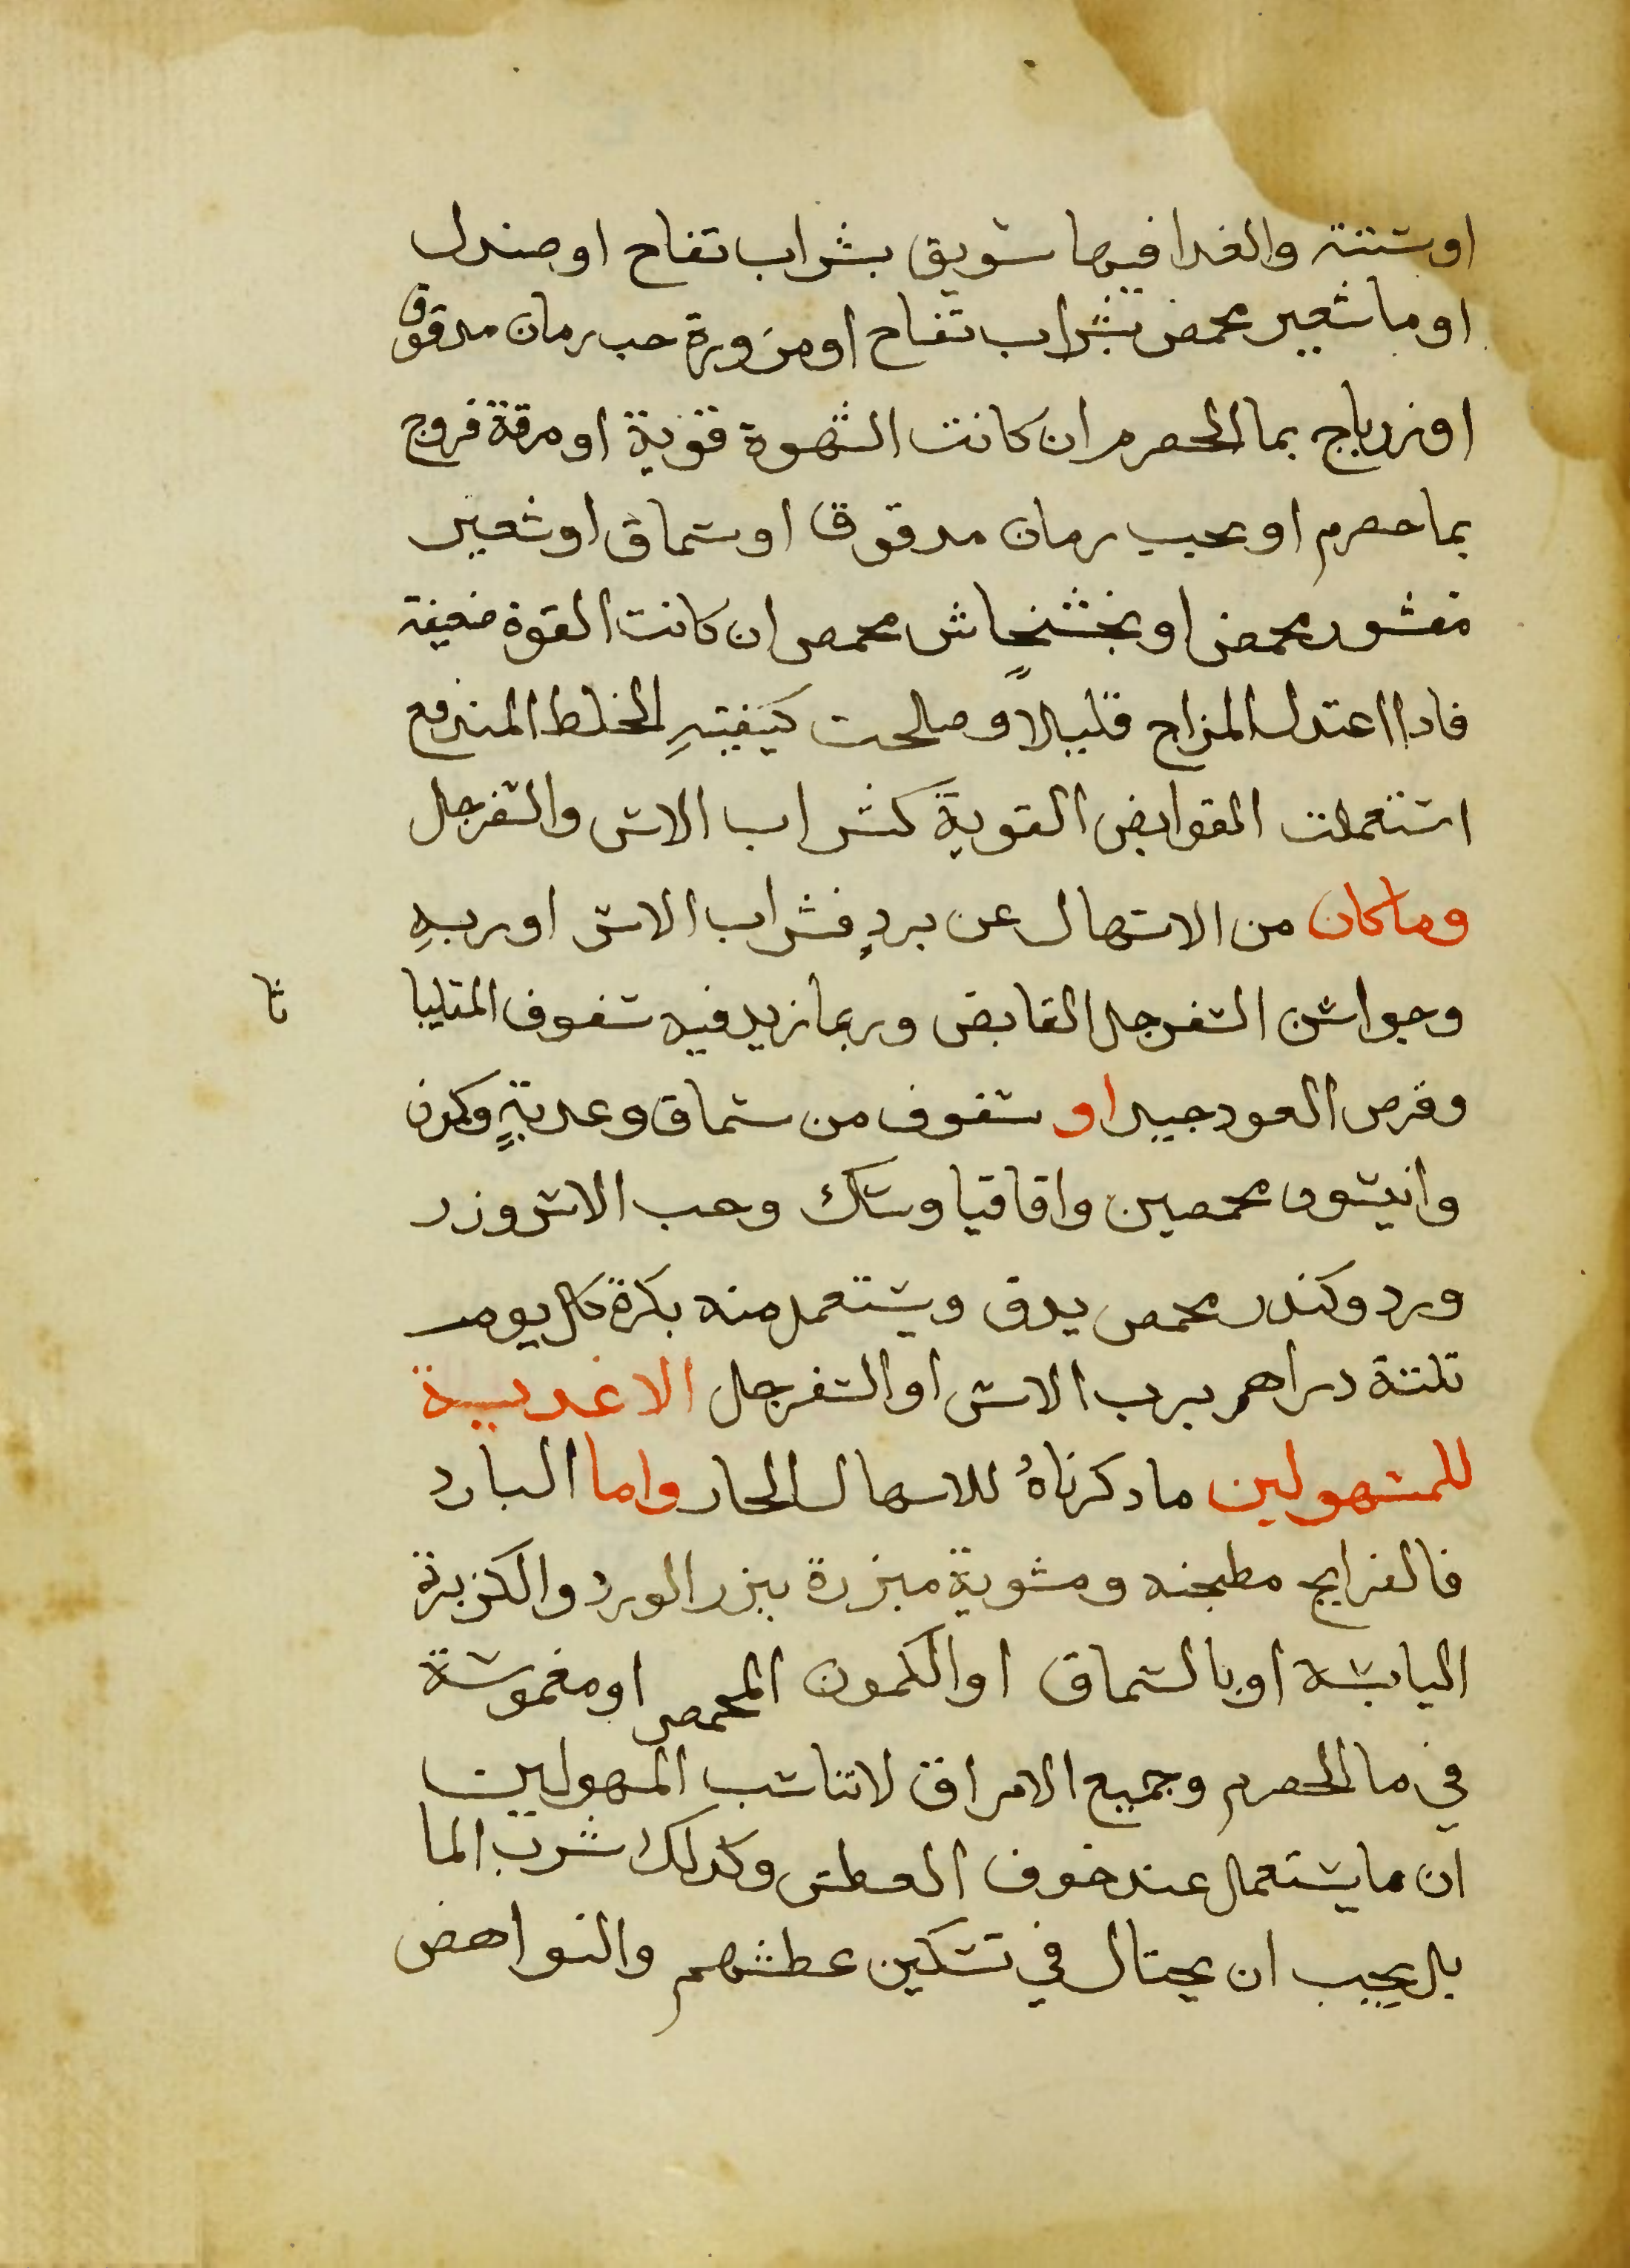 اوستة والغدا فيها سويق بشراب تفاح او صندل
او ما شعير محمض بشراب تفاح او مزورة حب رمان مدقوق
او زرباج بما الحصرم ان كانت الشهوة قوية او مرقة فروج
بما حصرم او بحب رمان مدقوق او سماق او شعير
مقشور محمض او بخشخاش محمص ان كانت القوة ضعيفة
فادا اعتدل المزاج قليلا وصلحت كيفيته الخلط المندفع
استعملت القوابض القوية كشراب الاس والسفرجل
وما كان من الاسهال عن بردٍ فشراب الاس او ربهِ
وجوارشن السفرجل القابض وربما زيد فيه سفوف المقلياثا
وقرص العود جيد او سفوف من سماق وعدبةٍ وكمون
وانيسون محمصين واقاقيا وسك وحب الاس وزر
ورد وكندر محمص يدق ويستعمل منه بكرة كل يوم
تلتة دراهم برب الاس او السفرجل الاغدية
للمسهولين ما دكرناهُ للاسهال الحار واما البارد
فالفرايج مطجنه ومشوية مبزرة ببزر الورد والكزبرة
اليابسة او بالسماق او الكمون المحمص او مغموسة
في ما الحصرم وجميع الامراق لا تناسب المسهولين
ان ما يستعمل عند خوف العطش وكدلك شرب الما
بل يجب ان يحتال في تسكين عطشهم والنواهض